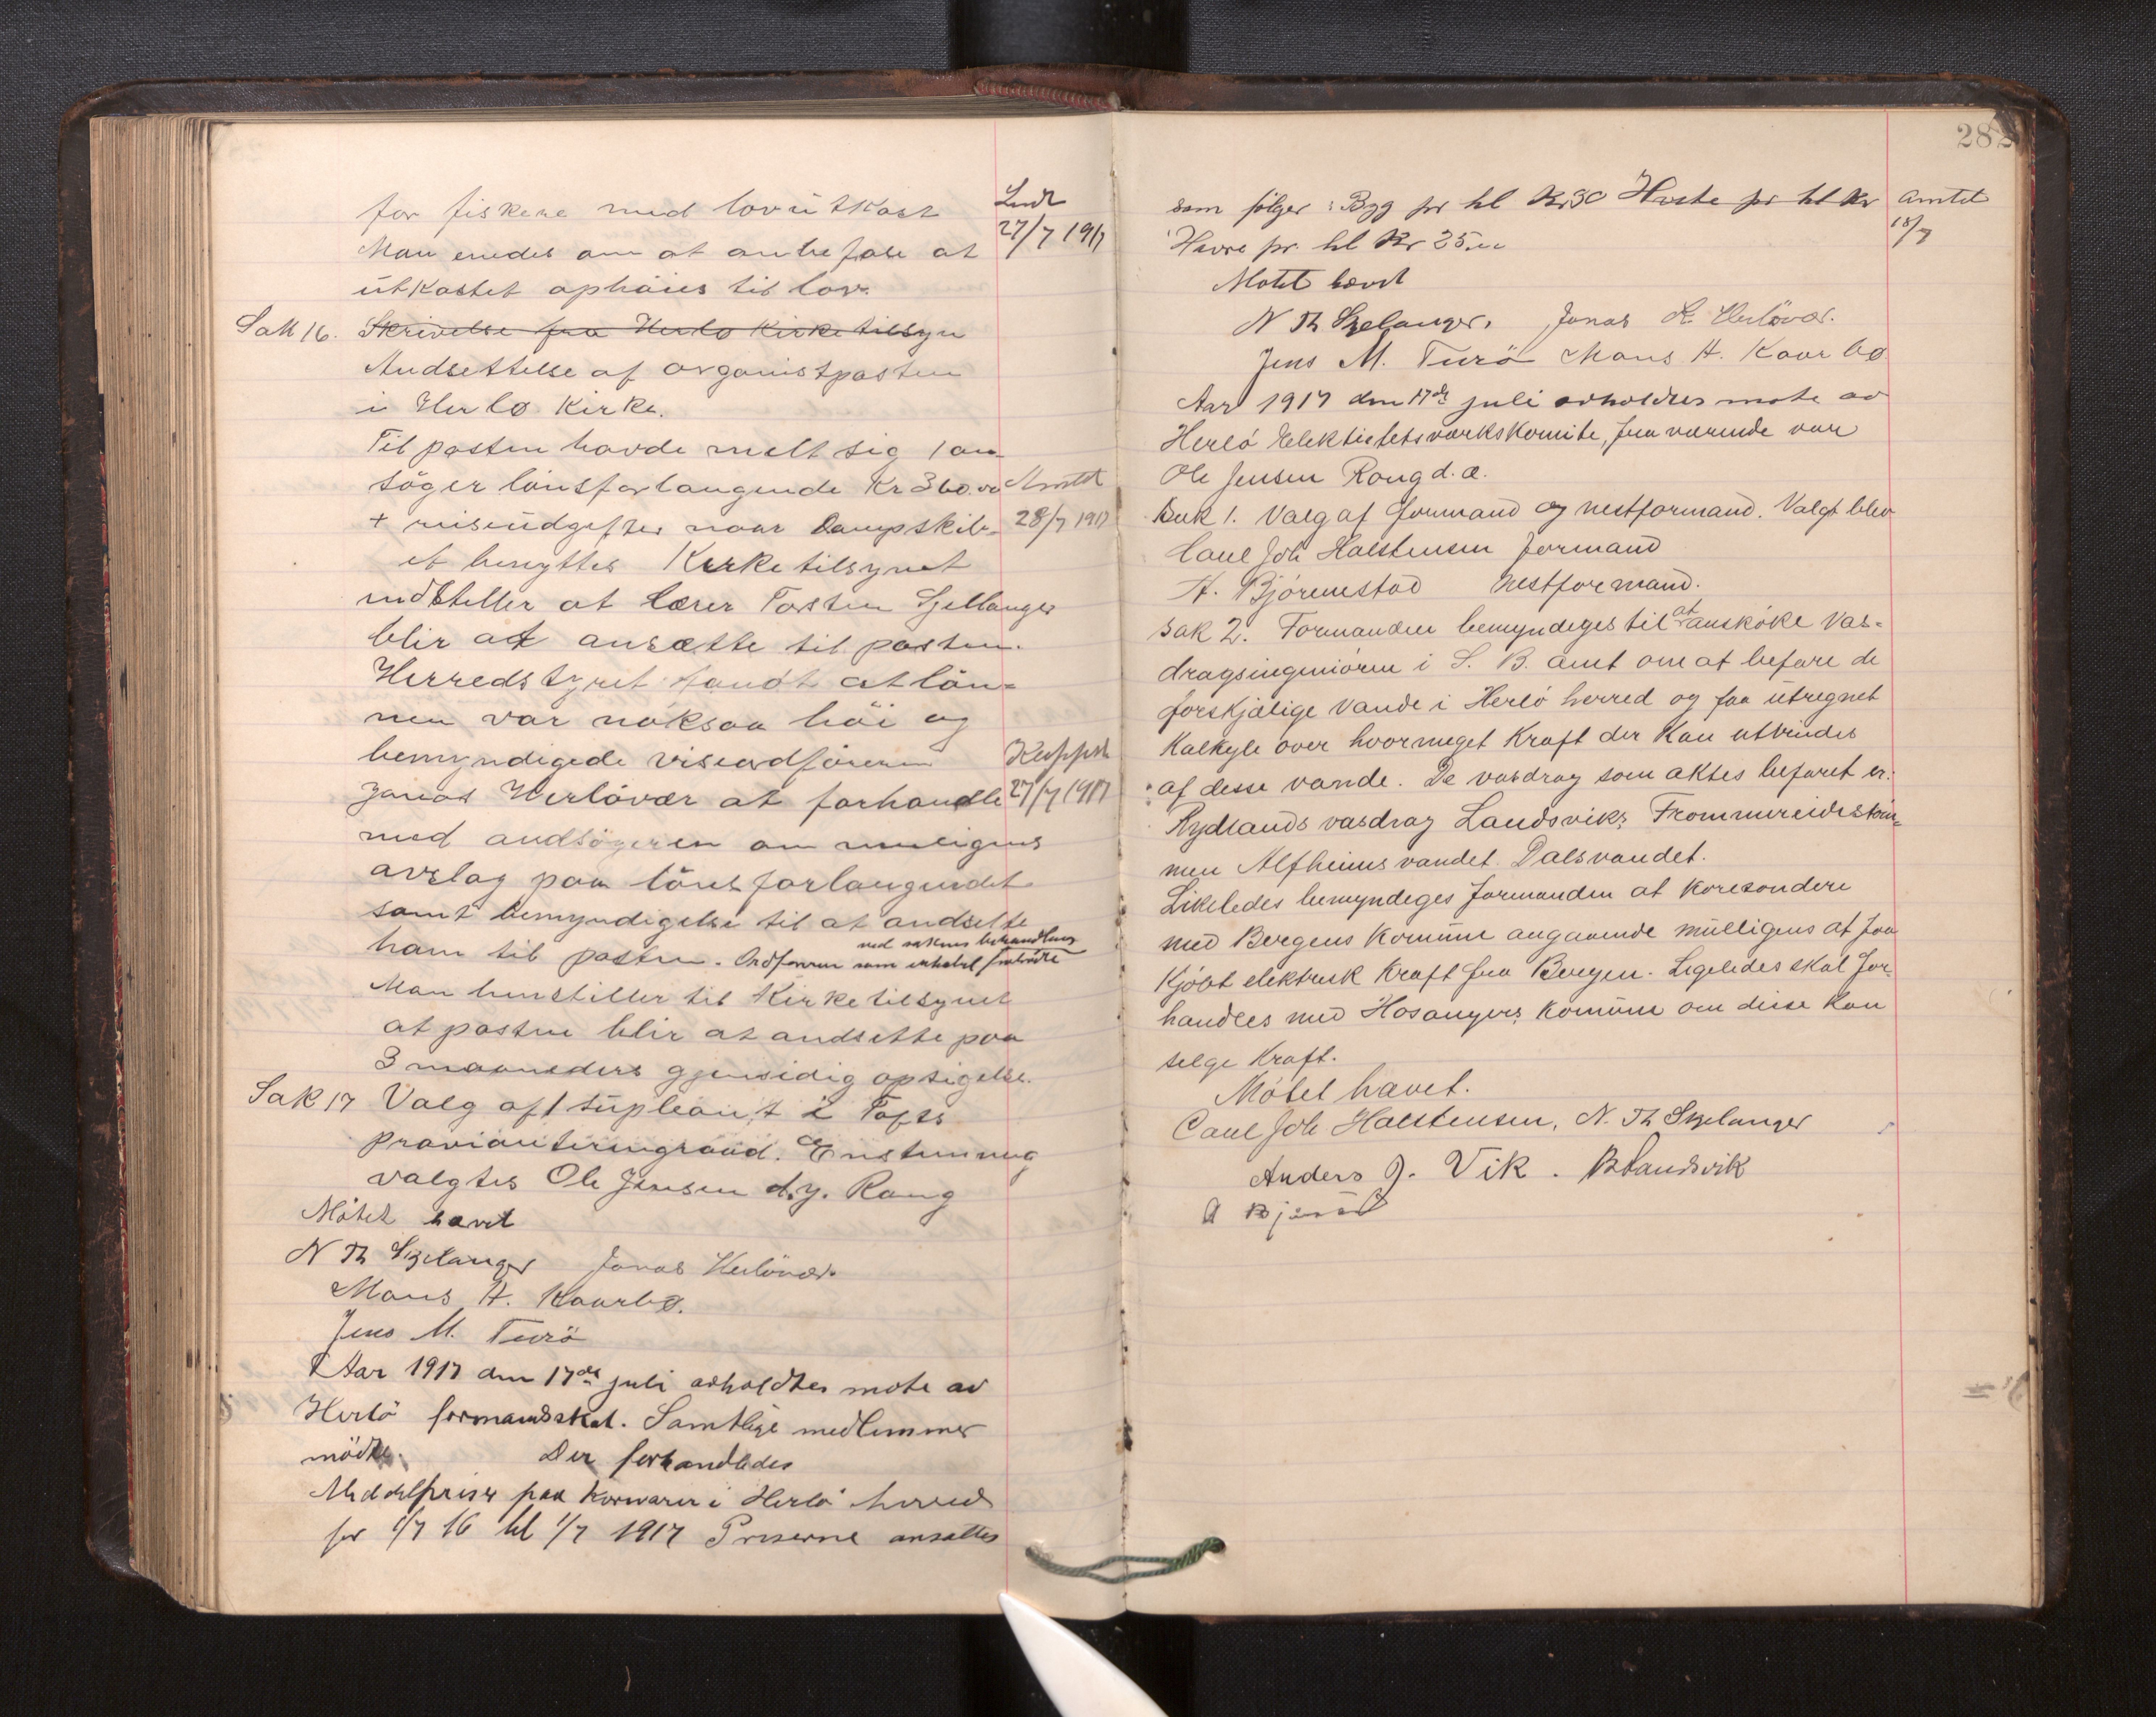 for fiskere med lovutkast
Man enedes om at anbefale at
utkastet ophöies til lov.
Sak 16. Skrivelse fra Herlo Kirketilsyn
Andsettelse af organistposten
i Herlo Kirke.
Til posten havde melt sig 1 an-
söger lönsforlangende Kr 360.00
+ reiseudgifter naar Dampskib-
et benyttes Kirketilsynet
indstiller at lærer Torsten Sjellanger
blir at ansætte til posten.
Herredstyret fandt at lön-
nen var noksaa höi og
bemyndigede viseordföreren
Jonas Herlövær at forhandle
med andsögeren om muligens
avslag paa lönsforlangendet
samt bemyndigelse til at andsette
ved sakens behandling
ham til posten. Ordföreren som inhabil fratraadte
Man henstiller til Kirketilsynet
at posten blir at andsette paa
3 maaneders gjensidig opsigelse.
Sak 17 Valg af 1 supleant i Tofts
provianteringraad. Enstemmig
valgtes Ole Jensen d.y. Rong
Mötet hævet
N Th Sjelanger Jonas Herlövær.
Mons H. Kaarbø.
Jens M. Turö
Aar 1917 den 17de juli avholdtes mote av
Herlö formandskat. Samtlige medlemmer
mödte. Der forhandledes
Meddelpriser paa kornvarer i Herlö herred
for 1/7 16 til 1/7 1917 Priserne ansattes
Sendt
27/7 1917
Amtet
28/7 1917
Kirkppst
27/7 1917
282
som fölger: Byg pr hl Kr 30 Hvete pr hl Kr
Havre pr. hl Kr 25.00
Amtet
18/7
Motet hævet
N Th Sjelanger. Jonas L. Herlövær.
Jens M. Turö Mons H. Kaarbø
Aar 1917 den 17de juli avholdtes mote av
Herlö Elektisitetsværkskomite, fraværende var
Ole Jensen Rong d.æ.
Sak 1. Valg af formand og nestformand. Valgt blev
Carl Joh Halstensen formand
A. Björnestad nestformand.
at
Sak 2. Formanden bemyndeges til ansköke Vas-
dragsingeniören i S. B. amt om at befare de
forskjælige vande i Herlö herred og faa utregnet
Kalkyle over hvormeget Kraft der kan utvindes
af desse vande. De vasdrag som aktes befaret er:
Rydlands vasdrag Landsviks, Frommereidstön-
nen Alfheimsvandet. Dalsvandet.
Likeledes bemyndeges formanden at koresondere
med Bergens Komune angaaende mulligens at faa
Kjöbt elektrisk Kraft fra Bergen. Ligeledes skal for-
handles med Hosangers Komune om disse kan
selge Kraft.
Mötet hævet.
Carl Joh Halstensen, N. Th Sjelanger
Anders J. Vik. B Landsvik
A Björnestad